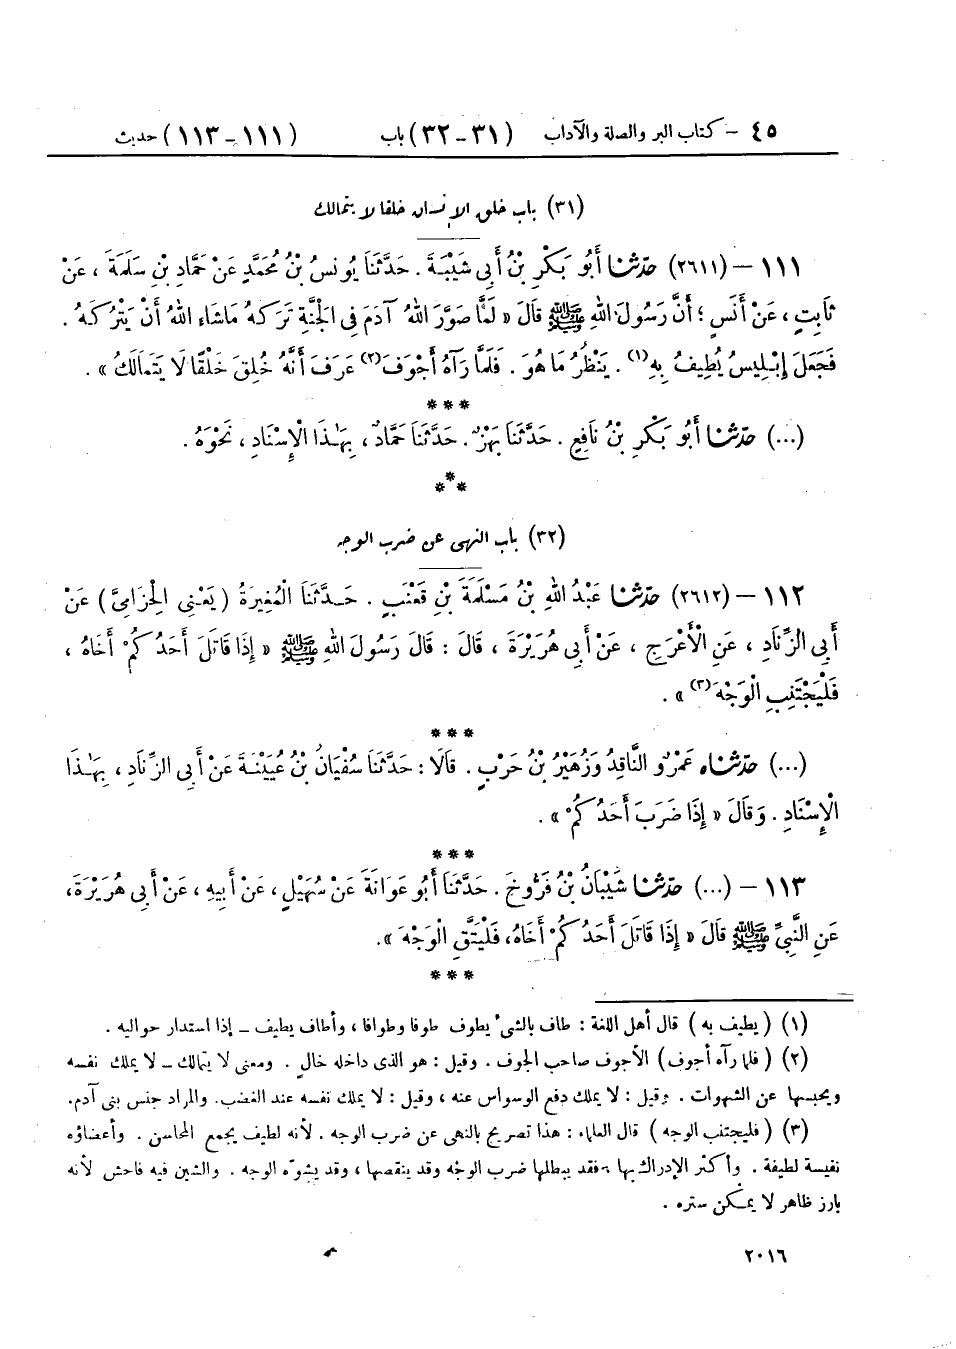 ٤٥ – كتاب البر والصلة والآداب (٣١ – ٣٢) باب (١١١ – ١١٣) حديث
(٣١) باب خلق الإنسان خلقا لا يتمالك
١١١ – (٢٦١١) حَدَّثَنَا أَبُو بَكْرِ بْنُ أَبِي شَيْبَةَ . حَدَّثَنَا يُونُسُ بْنُ مُحَمَّدٍ عَنْ حَمَّادِ بْنِ سَلَمَةَ ، عَنْ
ثَابِتٍ ، عَنْ أَنَسٍ ؛ أَنَّ رَسُولَ اللهِ ﷺ قَالَ « لَمَّا صَوَّرَ اللهُ آدَمَ فِي الْجَنَّةِ تَرَكَهُ مَاشَاءَ اللهُ أَنْ يَتْرُكَهُ .
فَجَعَلَ إِبْلِيسُ يُطِيفُ بِهِ(١) . يَنْظُرُ مَا هُوَ . فَلَمَّا رَآهُ أَجْوَفَ(٢) عَرَفَ أَنَّهُ خُلِقَ خَلْقًا لَا يَتَمَالَكُ » .
***
(...) حَدَّثَنَا أَبُو بَكْرِ بْنُ نَافِعٍ . حَدَّثَنَا بَهْزٌ . حَدَّثَنَا حَمَّادٌ ، بِهَٰذَا الْإِسْنَادِ ، نَحْوَهُ .
***
(٣٢) باب النهى عن ضرب الوجه
١١٢ – (٢٦١٢) حَدَّثَنَا عَبْدُ اللهِ بْنُ مَسْلَمَةَ بْنِ قَعْنَبٍ . حَدَّثَنَا الْمُغِيرَةُ ( يَعْنِي الْحِزَامِيَّ ) عَنْ
أَبِي الزِّنَادِ ، عَنِ الْأَعْرَجِ ، عَنْ أَبِي هُرَيْرَةَ ، قَالَ : قَالَ رَسُولَ اللهِ ﷺ « إِذَا قَاتَلَ أَحَدُكُمْ أَخَاهُ ،
فَلْيَجْتَنِبِ الْوَجْهَ(٣) » .
***
(...) حَدَّثَنَاه عَمْرٌو النَّاقِدُ وَزُهَيْرُ بْنُ حَرْبٍ . قَالَا : حَدَّثَنَا سُفْيَانُ بْنُ عُيَيْنَةَ عَنْ أَبِي الزِّنَادِ ، بِهَٰذَا
الْإِسْنَادِ . وَقَالَ « إِذَا ضَرَبَ أَحَدُكُمْ » .
***
١١٣ – (...) حَدَّثَنَا شَيْبَانُ بْنُ فَرُّوخَ . حَدَّثَنَا أَبُو عَوَانَةَ عَنْ سُهَيْلٍ ، عَنْ أَبِيهِ ، عَنْ أَبِي هُرَيْرَةَ،
عَنِ النَّبِيِّ ﷺ قَالَ « إِذَا قَاتَلَ أَحَدُكُمْ أَخَاهُ، فَلْيَتَّقِ الْوَجْهَ ».
***
(١) ( يطيف به ) قال أهل اللغة : طاف بالشىء يطوف طوفا وطوافا ، وأطاف يطيف – إذا استدار حواليه .
(٢) ( فلما رآه أجوف) الأجوف صاحب الجوف . وقيل : هو الذى داخله خال . ومعنى لا يتمالك – لا يملك نفسه
ويحبسها عن الشهوات . وقيل : لا يملك دفع الوسواس عنه ، وقيل : لا يملك نفسه عند الغضب. والمراد جنس بنى آدم.
(٣) ( فليجتنب الوجه ) قال العلماء : هذا تصريح بالنهى عن ضرب الوجه . لأنه لطيف يجمع المحاسن . وأعضاؤه
نفيسة لطيفة . وأكثر الإدراك بها ، فقد يبطلها ضرب الوجه وقد ينقصها ، وقد يشوّه الوجه . والشين فيه فاحش لأنه
بارز ظاهر لا يمكن ستره .
٢٠١٦